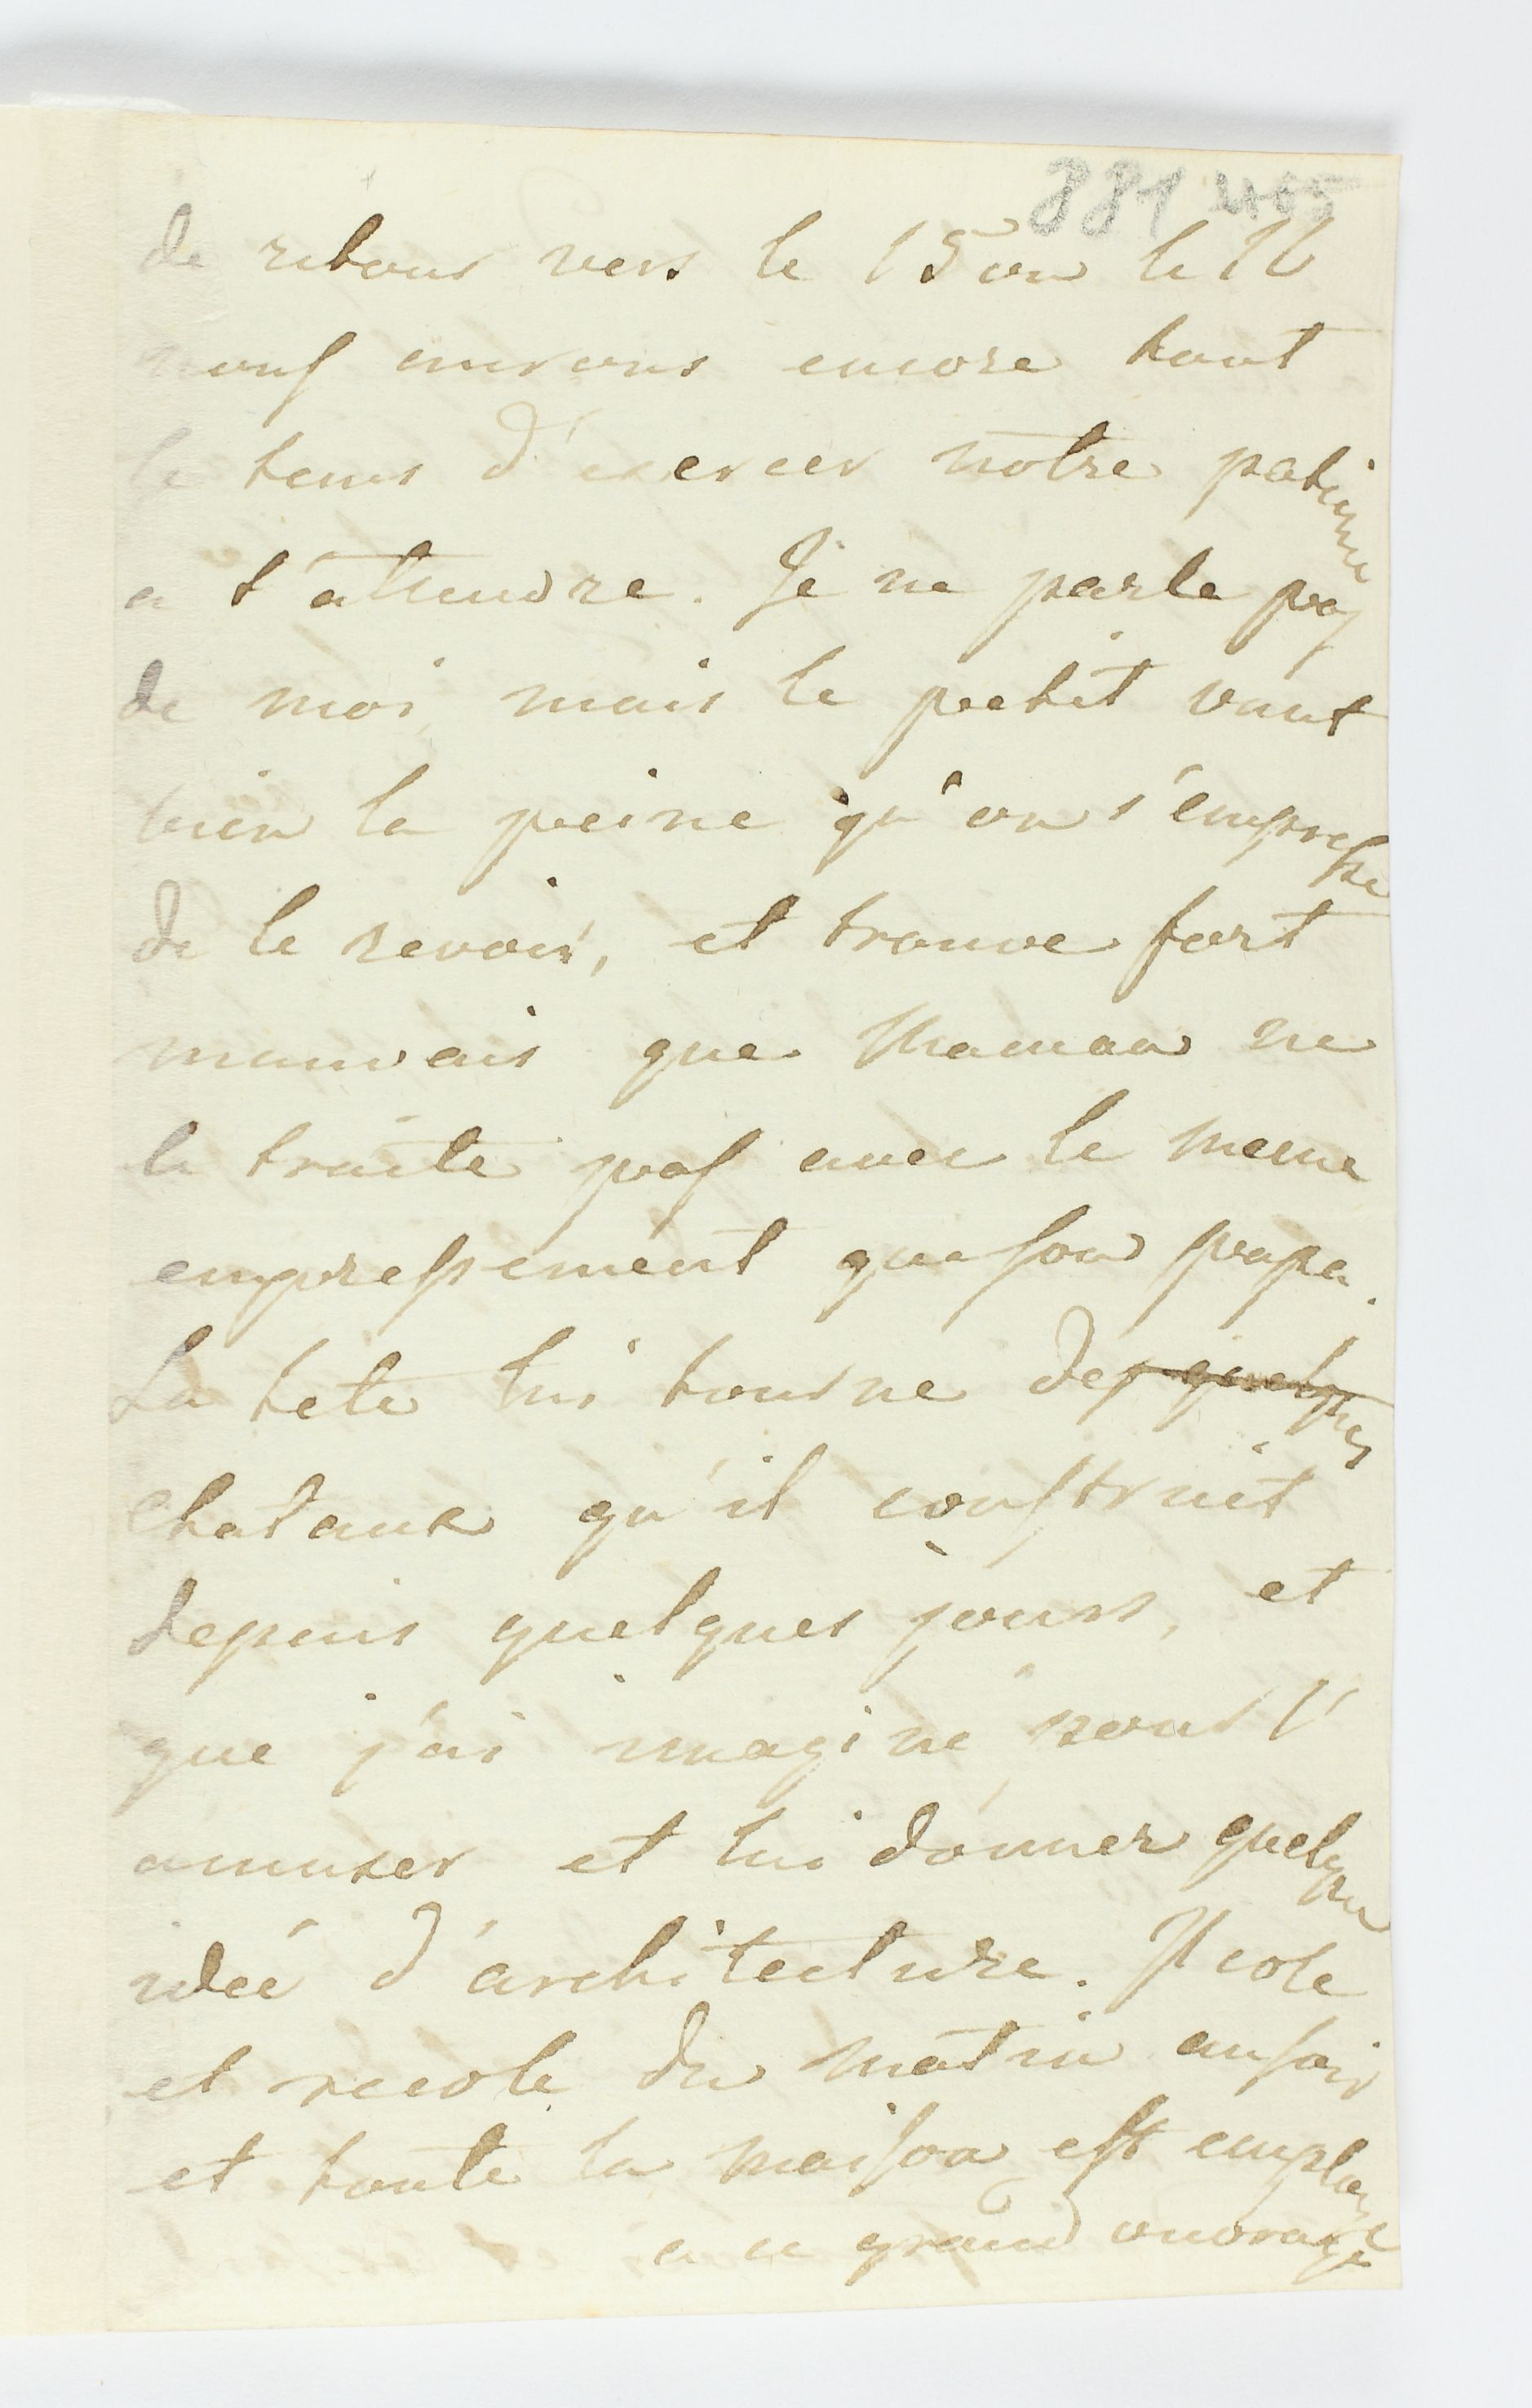 881 465
de retour vers le 15 ou le 16
nous aurons encore tout
le tems d'exercer notre patience
a t'attendre. Je ne parle pas
de moi, mais le petit vaut
bien la peine qu'on s'empresse
de le revoir, et trouve fort
mauvais que Maman ne
le traite pas avec le meme
empressement que son papa.
La tete lui tourne des quelques
chataux qu'il construit
depuis quelques jours, et
que j'ai imaginé pour l'
amuser et lui donner quelque
idée d'architecture. Il cole
et recole du matin au soir
et toute la maison est employé
a ce grand ouvrage